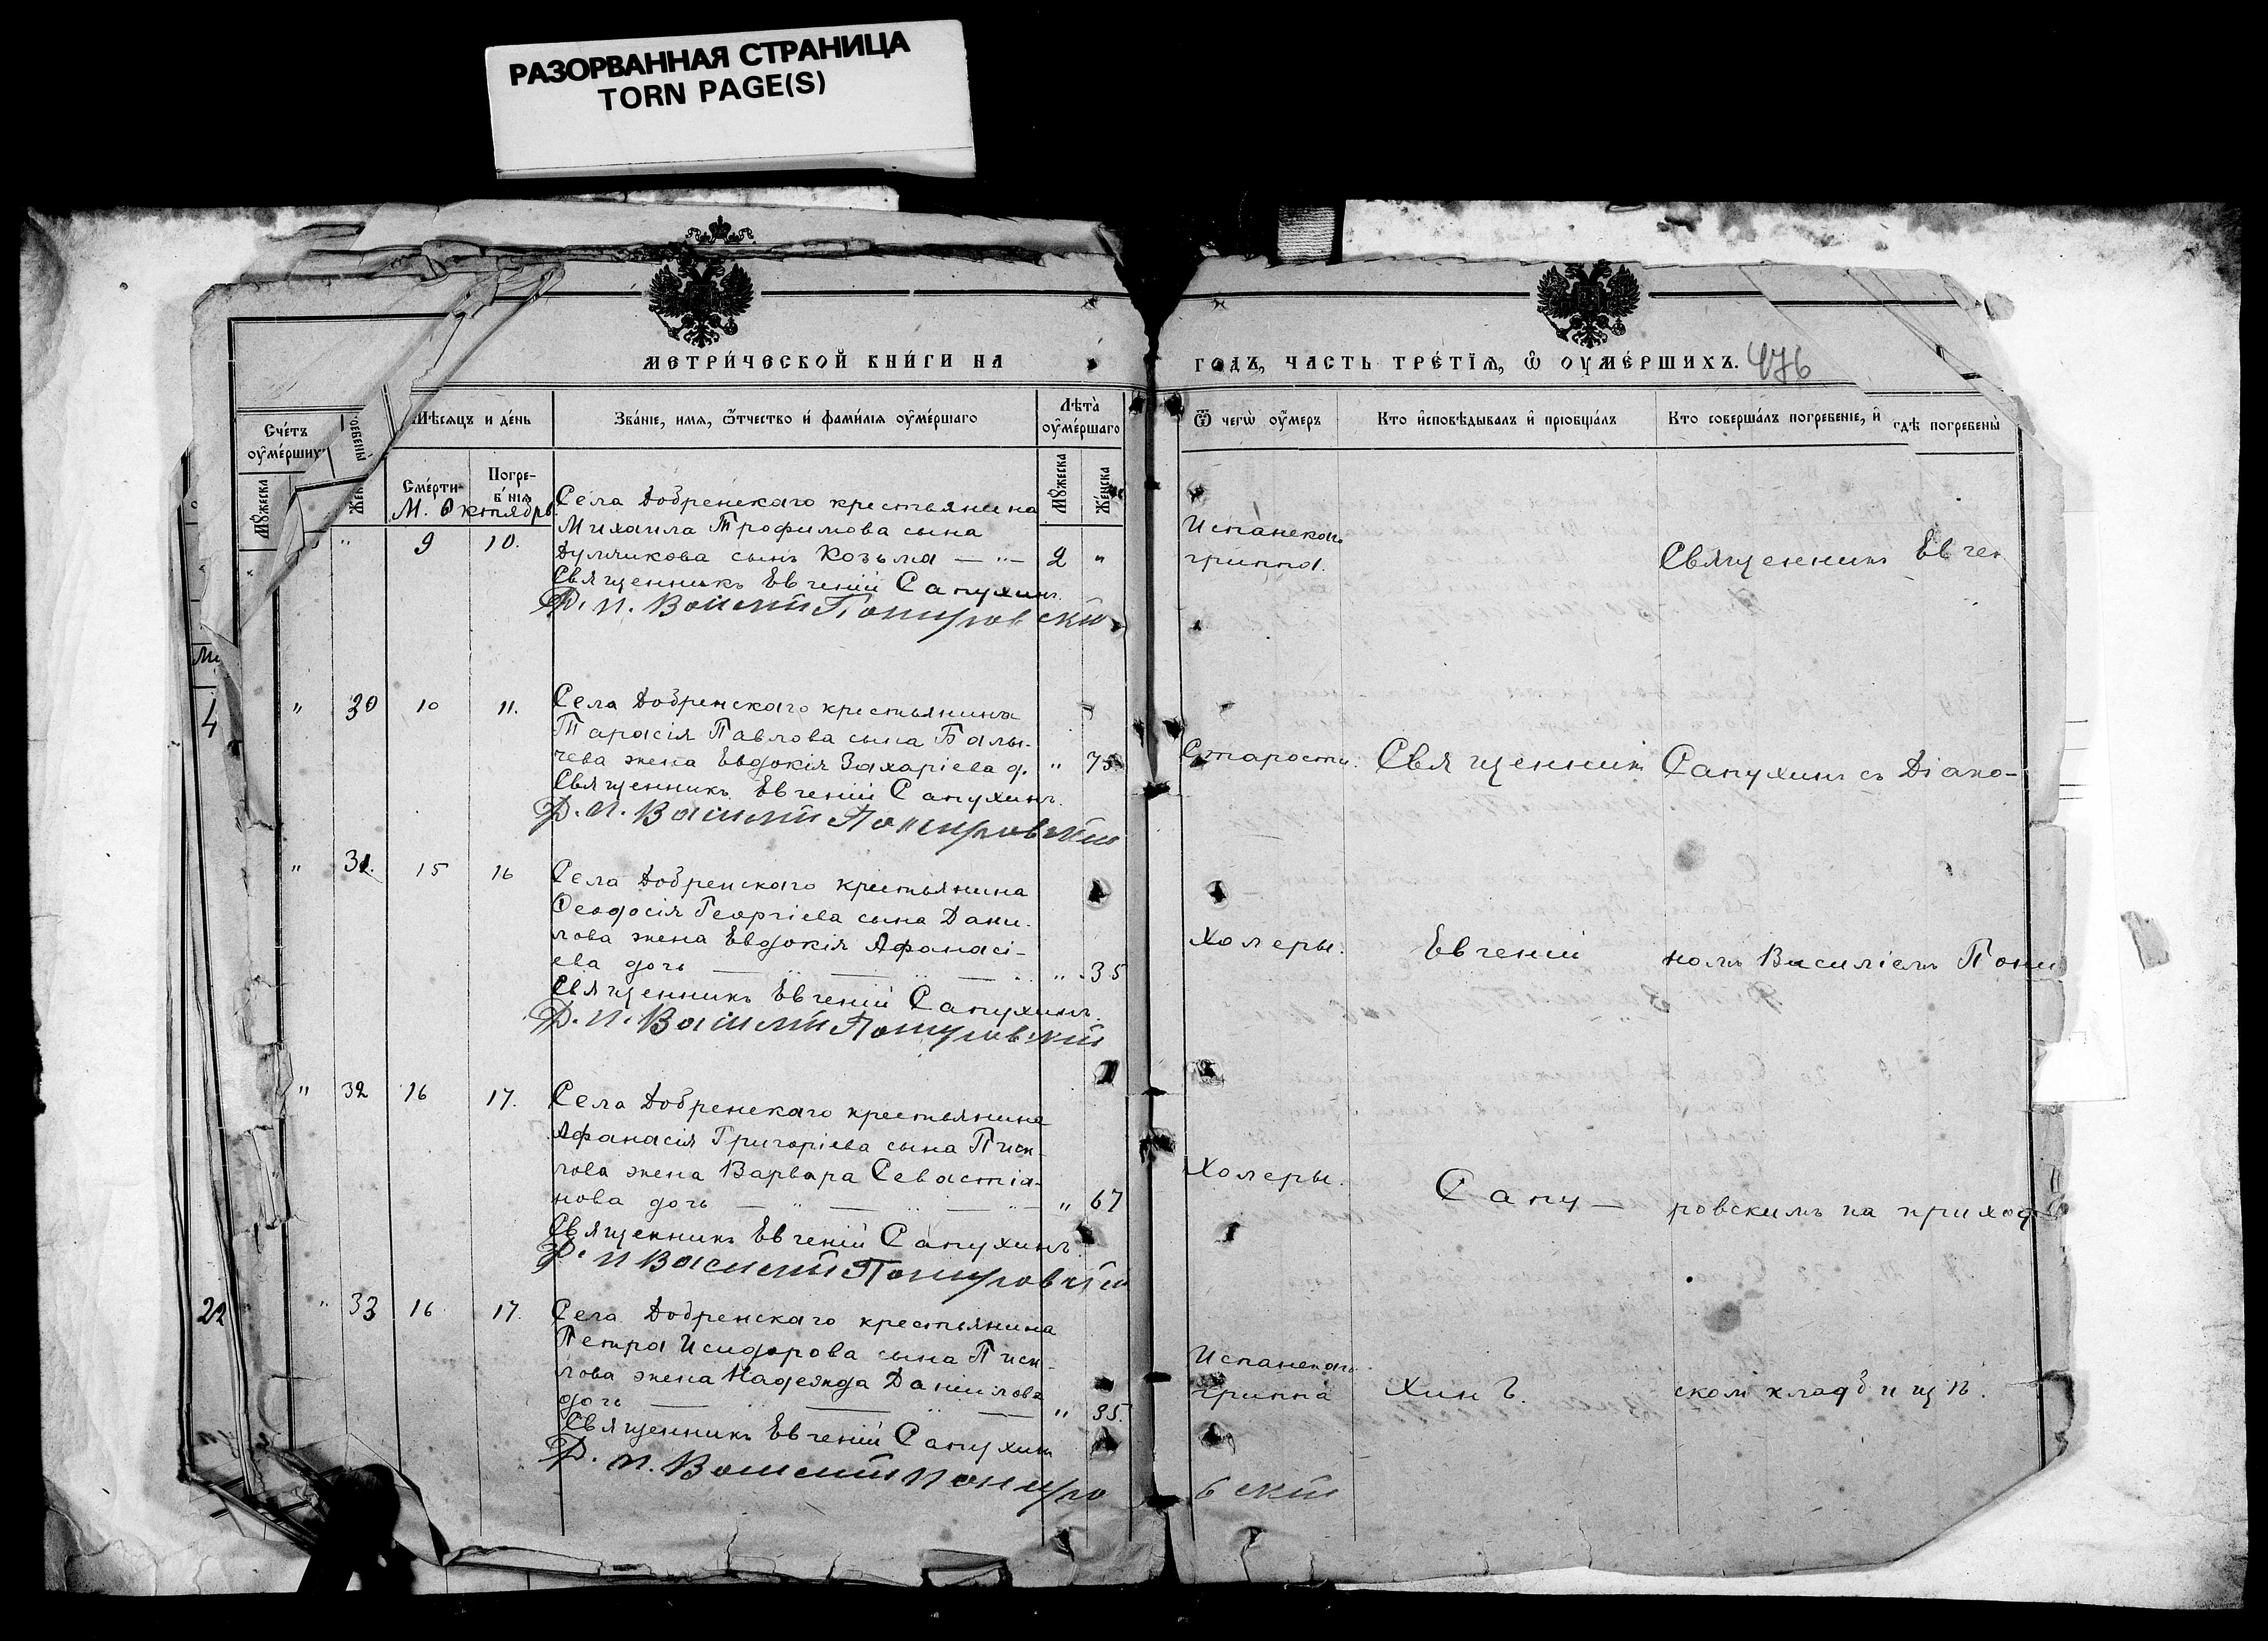 РАЗОРВАННАЯ СТРАНИЦА
TORN PAGE(S)
МЕТРИ́ЧЕСКОЙ КНИ́ГИ НА
ГОДЪ, ЧАСТЬ ТРЕ́ТІѦ, Ѽ ОУМЕ́РШИХЪ. 476
Сче́тъ
оуме́рших
Мꙋжеска
Мѣсяцъ и де́нь
Сме́рти
Погре-
бе́нія
М. Октябрь
Зва́ніе, имя, ѿтчество и фами́лія оуме́ршаго
Лѣта̀
оуме́ршаго
Мꙋжеска
Же́нска
Ѿ чегѡ̀ оу́меръ
Кто и҆сповѣ́дывалъ и҆ пріобща́лъ
Кто соверша́лъ погребе́ніе, и҆
гдѣ̀ погребены̀
" 9 10.
Села Добренскаго крестьянина
Михаила Трофимова сына
сынъ Козьма — " — 2 "
Священникъ Евгеній Сапухинъ.
Д. П. Василій
Испанскаго
гриппа.
Священникъ Евген
" 30 10 11.
Села Добренскаго крестьянина
Тарасія Павлова сына Балы-
чева жена Евдокія Захаріева д. " 75
Священникъ Евгеній Сапухинъ.
Д. П. Василій
Старости.
Священникъ
Сапухинъ съ Діако-
" 31. 15 16
Села Добренскаго крестьянина
Феодосія Георгіева сына Дани-
лова жена Евдокія Афанасі-
ева дочь — " — " — " 35
Священникъ Евгеній Сапухинъ.
Д. П. Василій
Холеры.
Евгеній
номъ Василіемъ Пони
" 32 16 17.
Села Добренскаго крестьянина
Афанасія Григоріева сына
жена Варвара Севастіа-
нова дочь — " — " — " — " 67
Священникъ Евгеній Сапухинъ.
Д. П. Василій Понировскій
Холеры.
Сапу —
ровскимъ на приход
" 33 16 17.
Села Добренскаго крестьянина
Петра Исидорова сына
жена Надежда Даніилова
дочь — " — " — " 35.
Священникъ Евгеній Сапухинъ
Д. П. Василій Пониро
вскій
Испанскаго
гриппа
хинъ.
скомъ кладбищѣ.
4
22